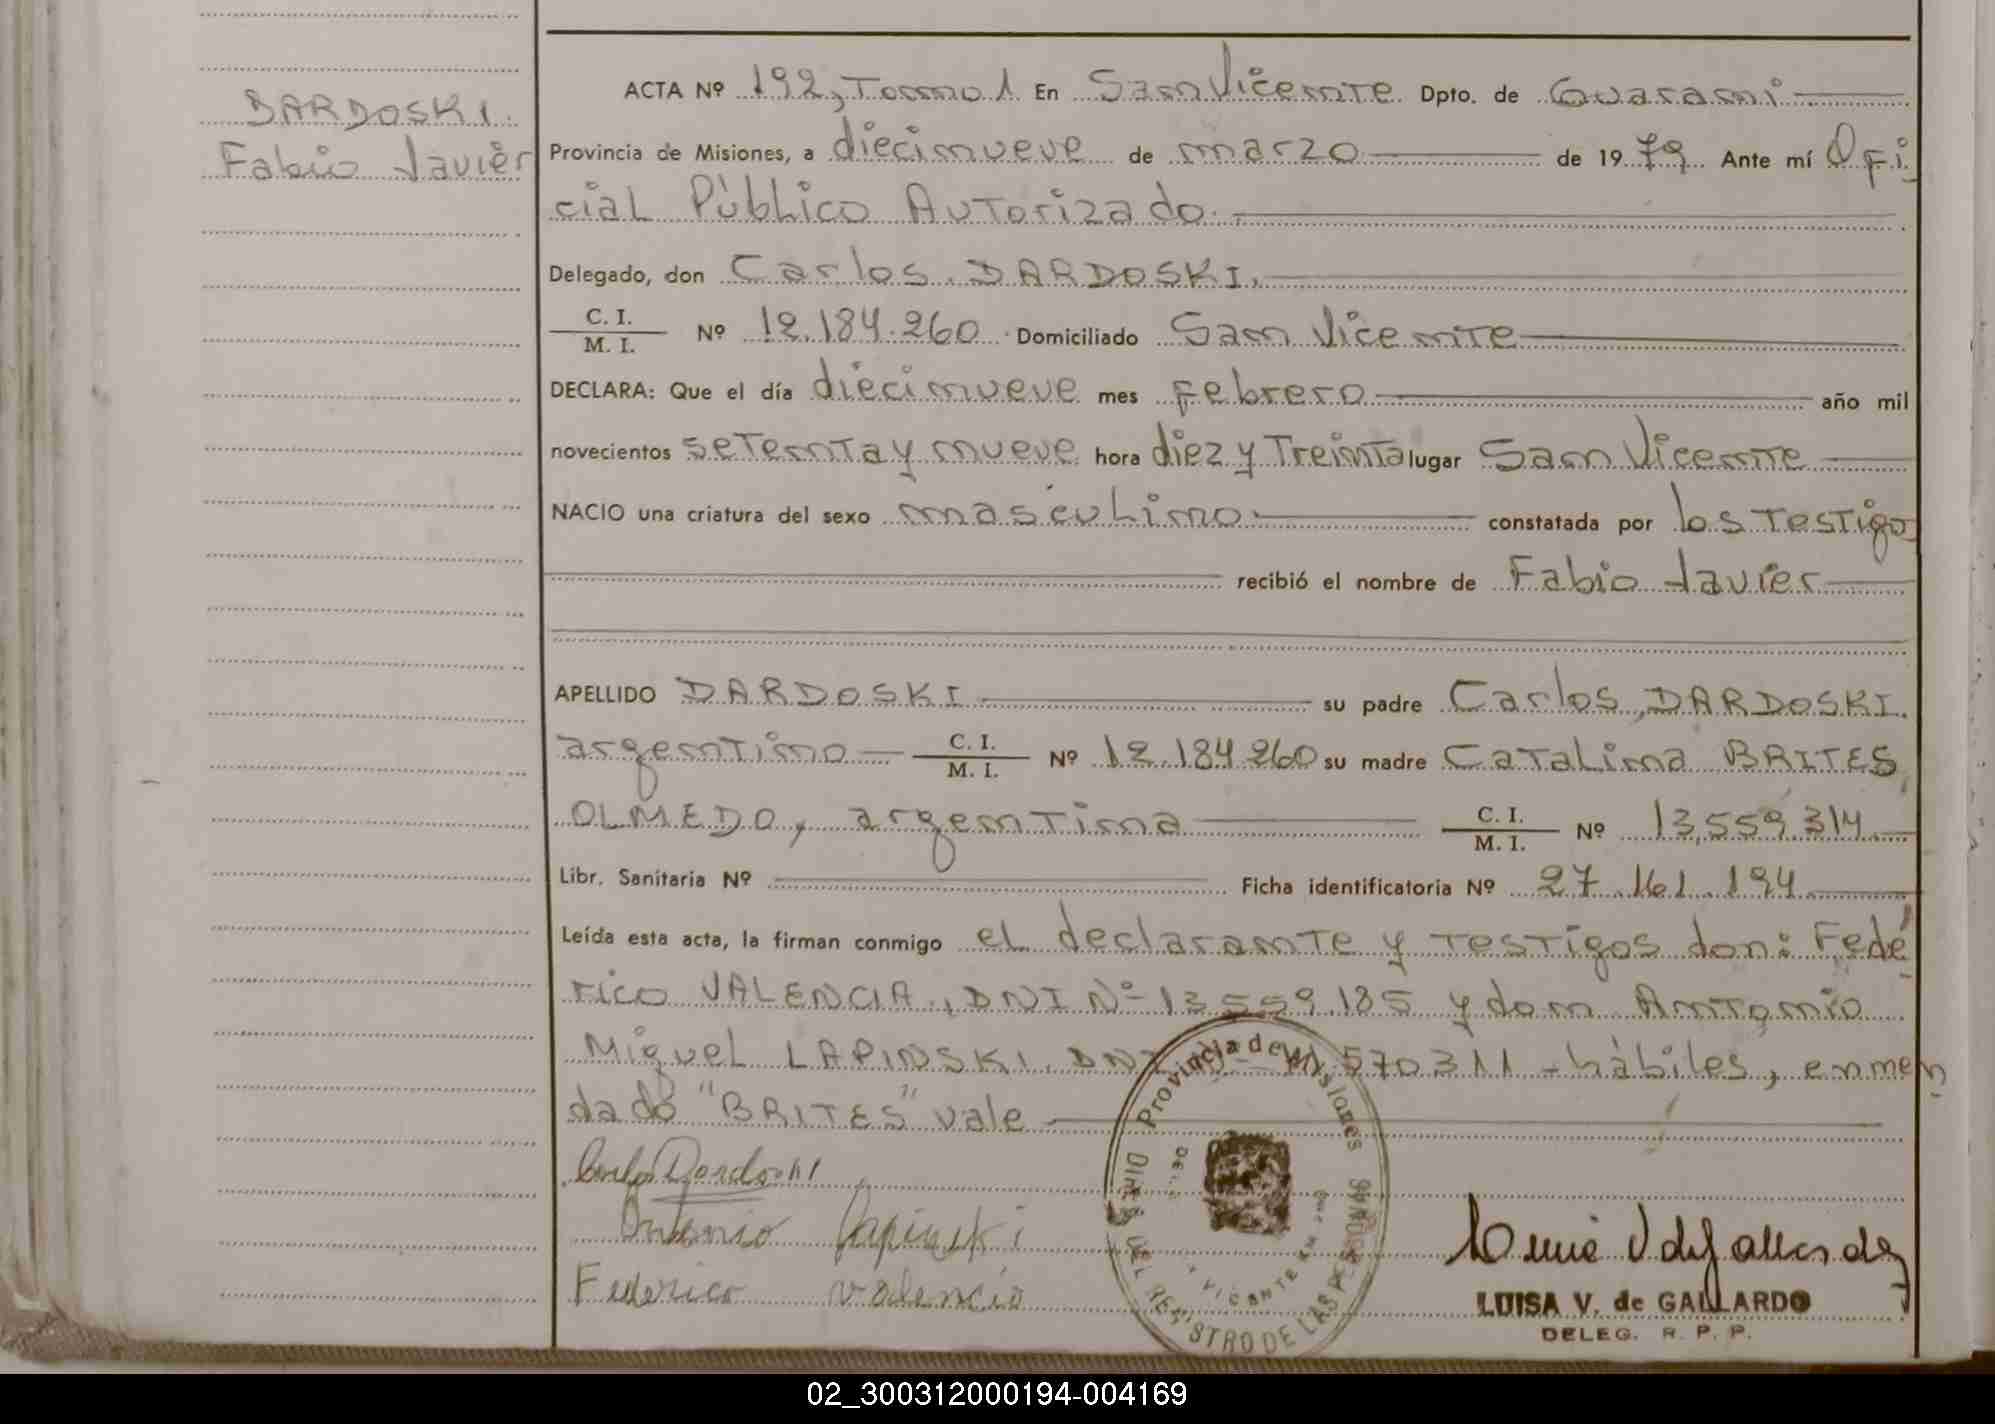 DARDOSKI.
Fabio Javier
ACTA Nº 192, Tomo 1 En San Vicente Dpto. de Guaraní
Provincia de Misiones, a diecinueve de marzo de 1979 Ante mí Ofi
cial Público Autorizado.
Delegado, don Carlos DARDOSKI.
C. I.
M. I. Nº 12.184.260 Domiciliado San Vicente
DECLARA: Que el día diecinueve mes Febrero año mil
novecientos setenta y nueve hora diez y Treinta lugar San Vicente
NACIO una criatura del sexo masculino constatada por los Testigos
recibió el nombre de Fabio Javier
APELLIDO DARDOSKI su padre Carlos, DARDOSKI.
argentino C. I.
M. I. Nº 12.184.260 su madre Catalina BRITES
OLMEDO, argentina C. I.
M. I. Nº 13.559.314
Libr. Sanitaria Nº Ficha identificatoria Nº 27.161.194
Leída esta acta, la firman conmigo el declarante y Testigos don: Fede
rico VALENCIA, DNI Nº 13.559.185 y don Antonio
Miguel LAPINSKI, DNI 570311 - hábiles, enmen
dado "BRITES" vale
Carlos Dardoski
Antonio Lapinski
Federico Valencio
Provincia de Misiones
DEL REGISTRO DE LAS PERSONAS
LUISA V. de GALLARDO
DELEG. R. P. P.
02_300312000194-004169